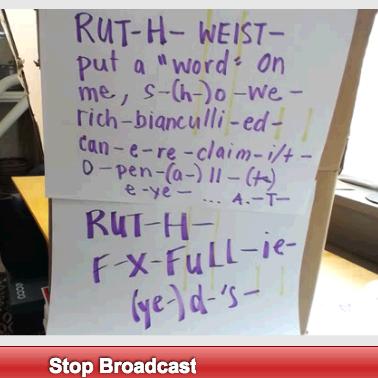 RUT-H- WEIST-
put a "word" on
me, s-(h-)o-we-
rich-bianculli-ed-
can-e-re-claim-i/t-
O-pen-(a-)ll-(t-)
e-ye- ... A.-T-
RUT-H-
F-X-FuLL-ie-
(ye-)d-'s-
Stop Broadcast